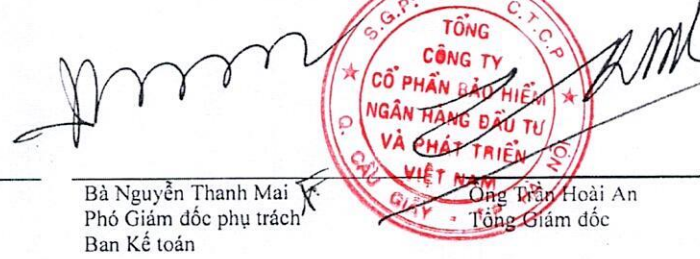 S.G.P:
C.T.C.P
TỔNG
CÔNG TY
CỔ PHẦN BẢO HIỂM
NGÂN HÀNG ĐẦU TƯ
VÀ PHÁT TRIỂN
VIỆT NAM
Q. CẦU GIẤY - TP HÀ NỘI
Bà Nguyễn Thanh Mai
Phó Giám đốc phụ trách
Ban Kế toán
Ông Trần Hoài An
Tổng Giám đốc